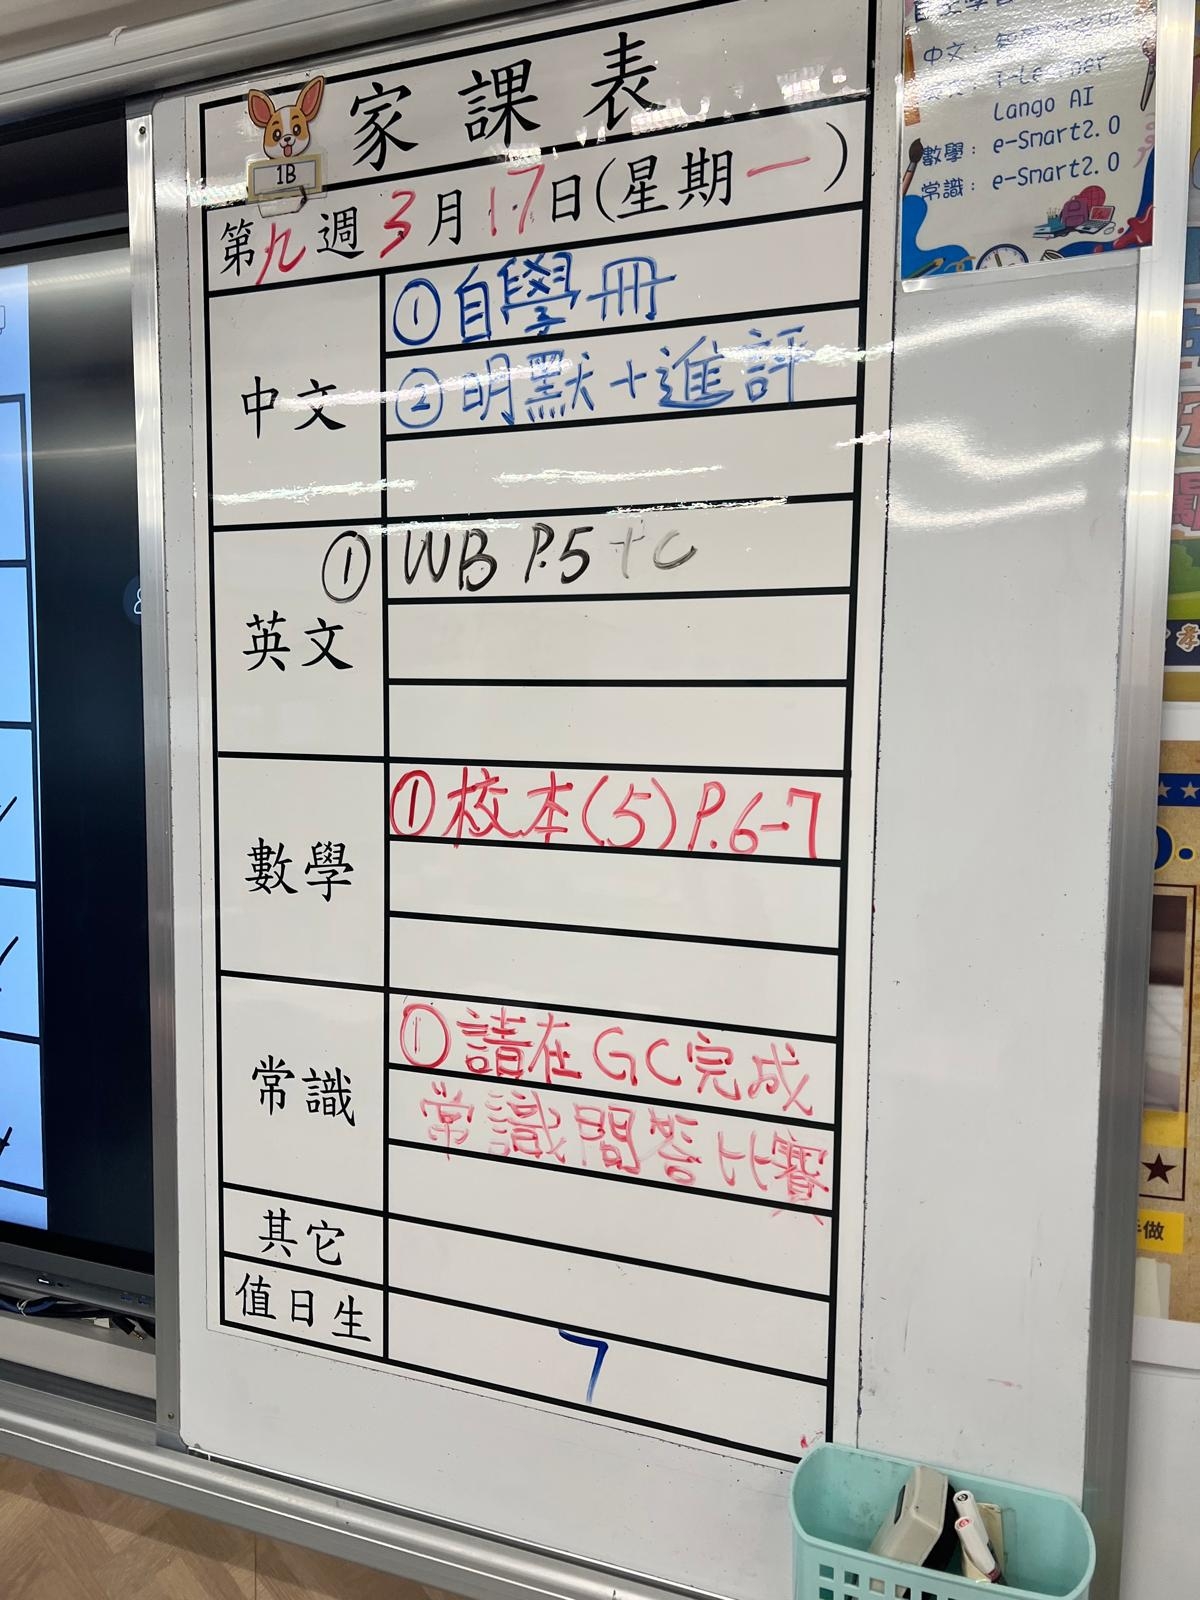 家課表
1B
第九週 3月17日(星期一)
中文
①自學冊
②明默+進評
英文
① WB P.5 + C
數學
①校本(5)P.6-7
常識
①請在GC完成
常識問答比賽
其它
值日生
7
中文:
i-Learner
Lango AI
數學: e-Smart2.0
常識: e-Smart2.0